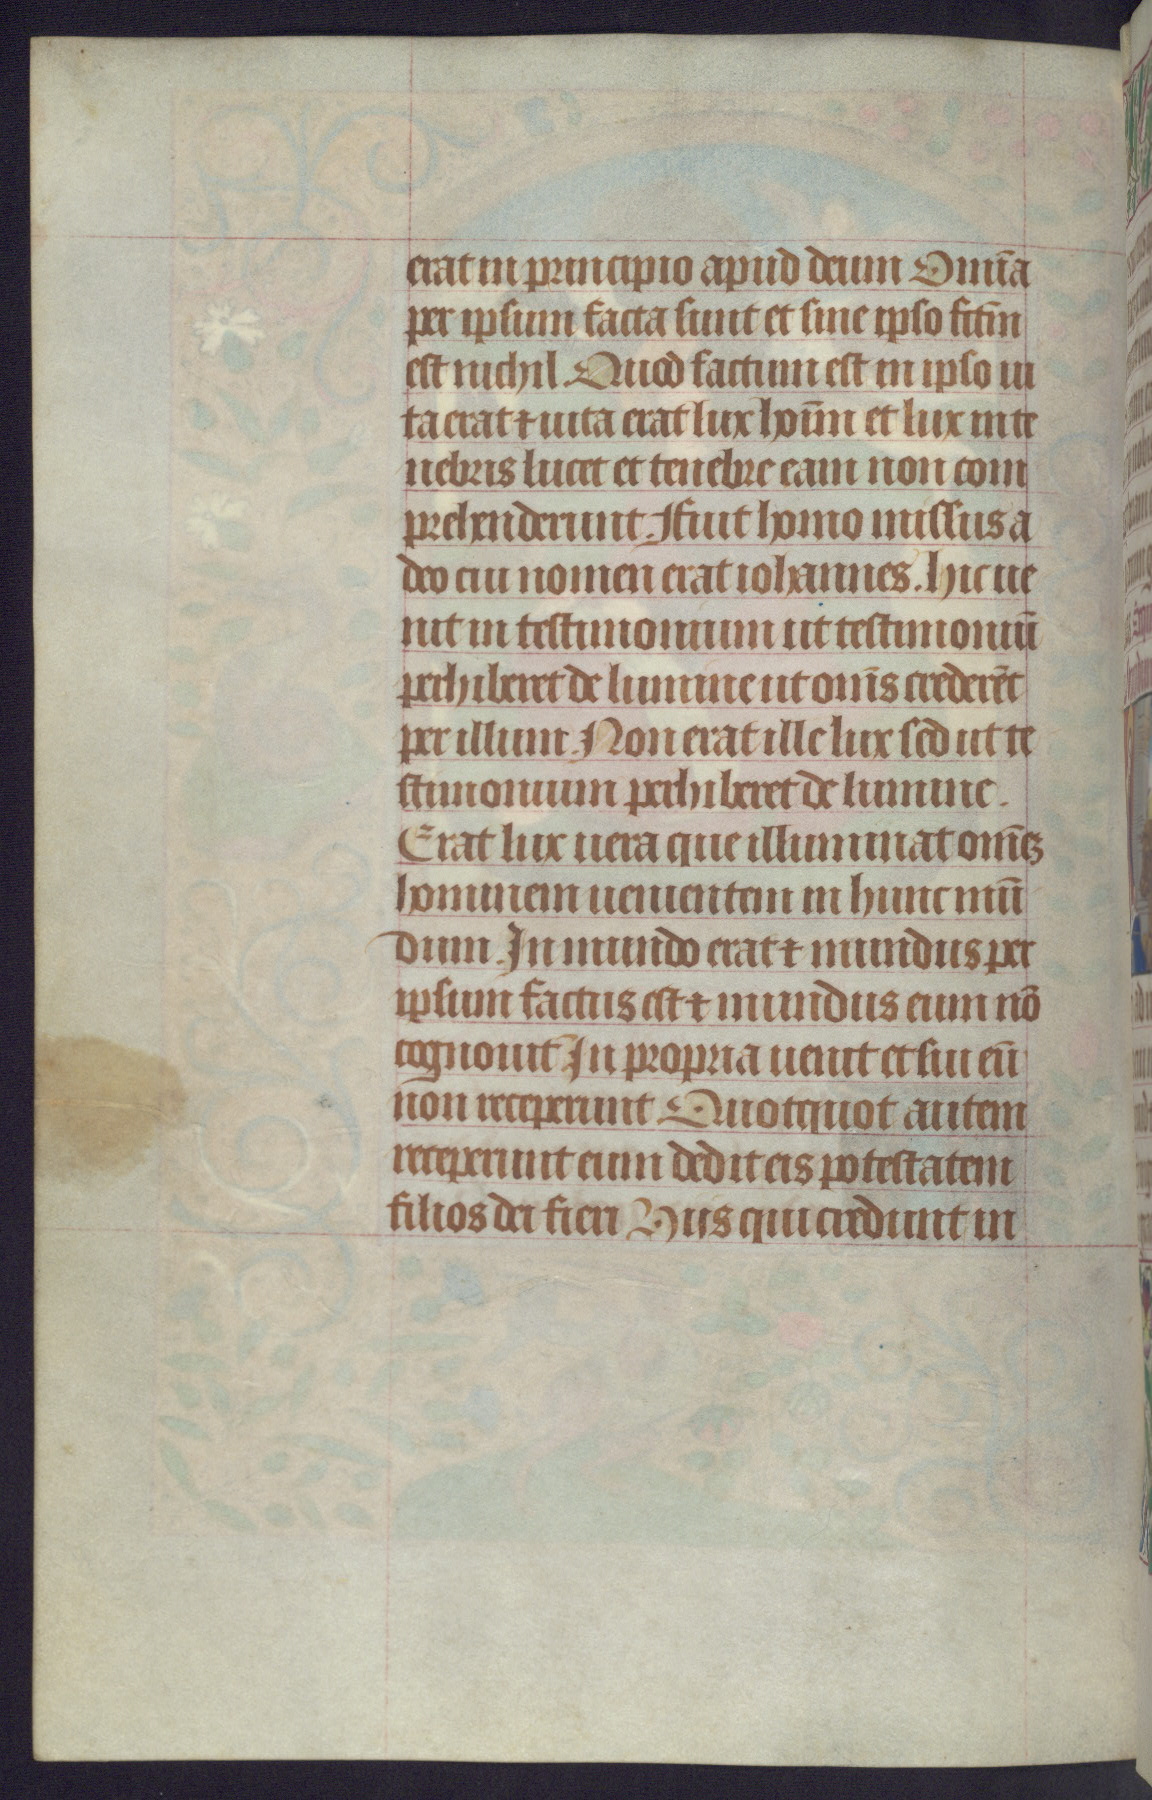 erat in principio apud deum Omīa
per ipsum facta sunt et sine ipso fctm̄
est nichil. Quod factum est in ipso ui
ta erat ⁊ uita erat lux hoīm et lux in te
nebris lucet et tenebre eam non com
prehenderunt. Fuit homo missus a
deo cui nomen erat iohannes. hic ue
nit in testimonium ut testimoniū
perhiberet de lumine ut om̄s crederēt
per illum. Non erat ille lux sed ut te
stimonium perhiberet de lumine.
Erat lux uera que illuminat omēꝫ
hominem uenientem in hunc mū
dum. In mundo erat ⁊ mundus per
ipsum factus est ⁊ mundus eum nō
cognouit In propria uenit et sui eū
non receperunt Quotquot autem
receperunt eum dedit eis potestatem
filios dei fieri Hijs qui credunt in